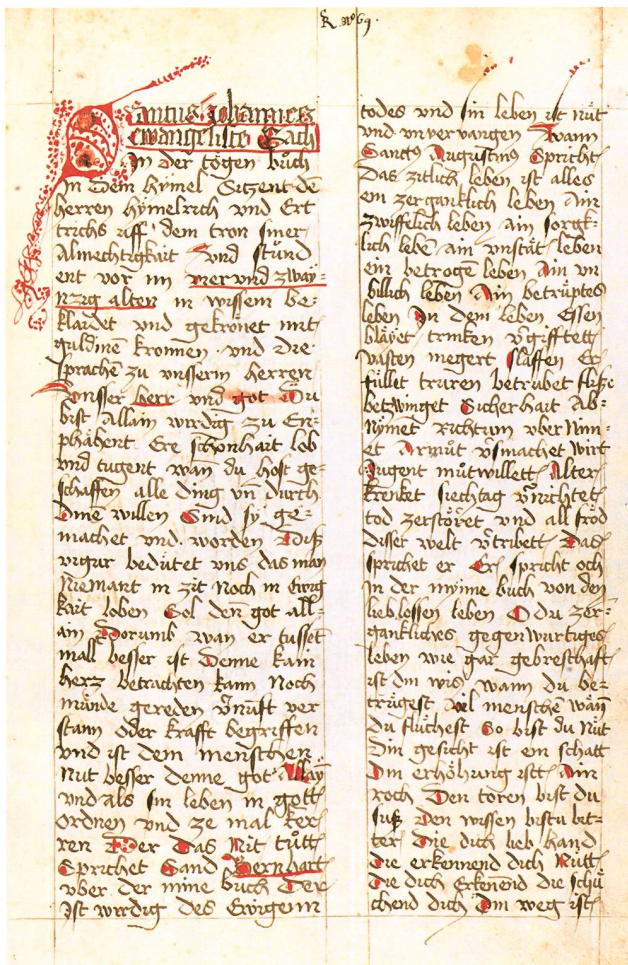 Santus Johannes
ewangeliste Sach
In der togen buͦch
In Dem hymel Sitzent de
herren hymelrich vnd Ert
trichs vff dem tron siner
Almechtigkait Vnd stuͦnd
ent vor im vier vnd zway-
nzig alten in wissem be-
klaidet vnd gekroͤnet mit
guldine kronnen vnd die
sprachen zu vnsserm herren
vnsser herr vnd got Du
bist Allain wirdig zu En-
phahent Ere schonhait lob
vnd tugent wan du host ge-
schaffen alle ding vn̄ durch
dine willen Sind sy ge-
machet vnd worden Disß
vigur beduͤtet vns das man
Niemant in zit noch in Ewig
kait loben Sol den̄ got all-
ain Dorumb wan er tusset
mall besser ist Denne kain
herz betrachten kann Noch
munde gereden vnuft ver
stann oder krafft begriffen
vnd ist dem menschen
Nut besser denne got Allay
vnd als sin leben in gott
ordnen vnd ze mal ker-
ren Wer das Nit tuͦtt
Sprichet Sand Bernhart
vber der mine buch Der
Ist wirdig des Ewigenn
todes vnd sin leben ist nuͤt
vnd vnvervangen Wann
Sanctus Augustinus Spricht
Das zitlich leben ist alles
ein zerganklich leben Ain
zwiffelich leben ain sorgk-
lich lebē ain vnstaͤt leben
ein betroge leben Ain vn
billich leben Ain betruͤptes
leben In dem leben Essen
blaͤyet trinken vgifftett
vasten megert slaffen Er
fullet truren betrubet
betzwinget Sicherhait Ab-
Nymet Richtum vber Nim-
et Armuͦt vsmachet wirt
Jugent muͦtwillett Alter
krenket siechtag vnichtet
tod zerstoͤret vnd all froͤd
disser welt vtribett Das
sprichet er Er spricht och
in der mynne buch von den
lieblossen leben O du zer-
gankliches gegenwurtiges
leben wie gar gebresthaft
ist din wis wann du be-
truͤgest vil mensche wan̄
du fluͤchest So bist du Nuͤt
Din gesicht ist ein schatt
Din erhoͤhung ist Ain
roch Den toren bist du
suͤß Den wissen bistu bit-
ter Die dich lieb hand
die erkennend dich Nuͤtt
Die dich Erkenēd die schuͤ
chend dich Din weg ist